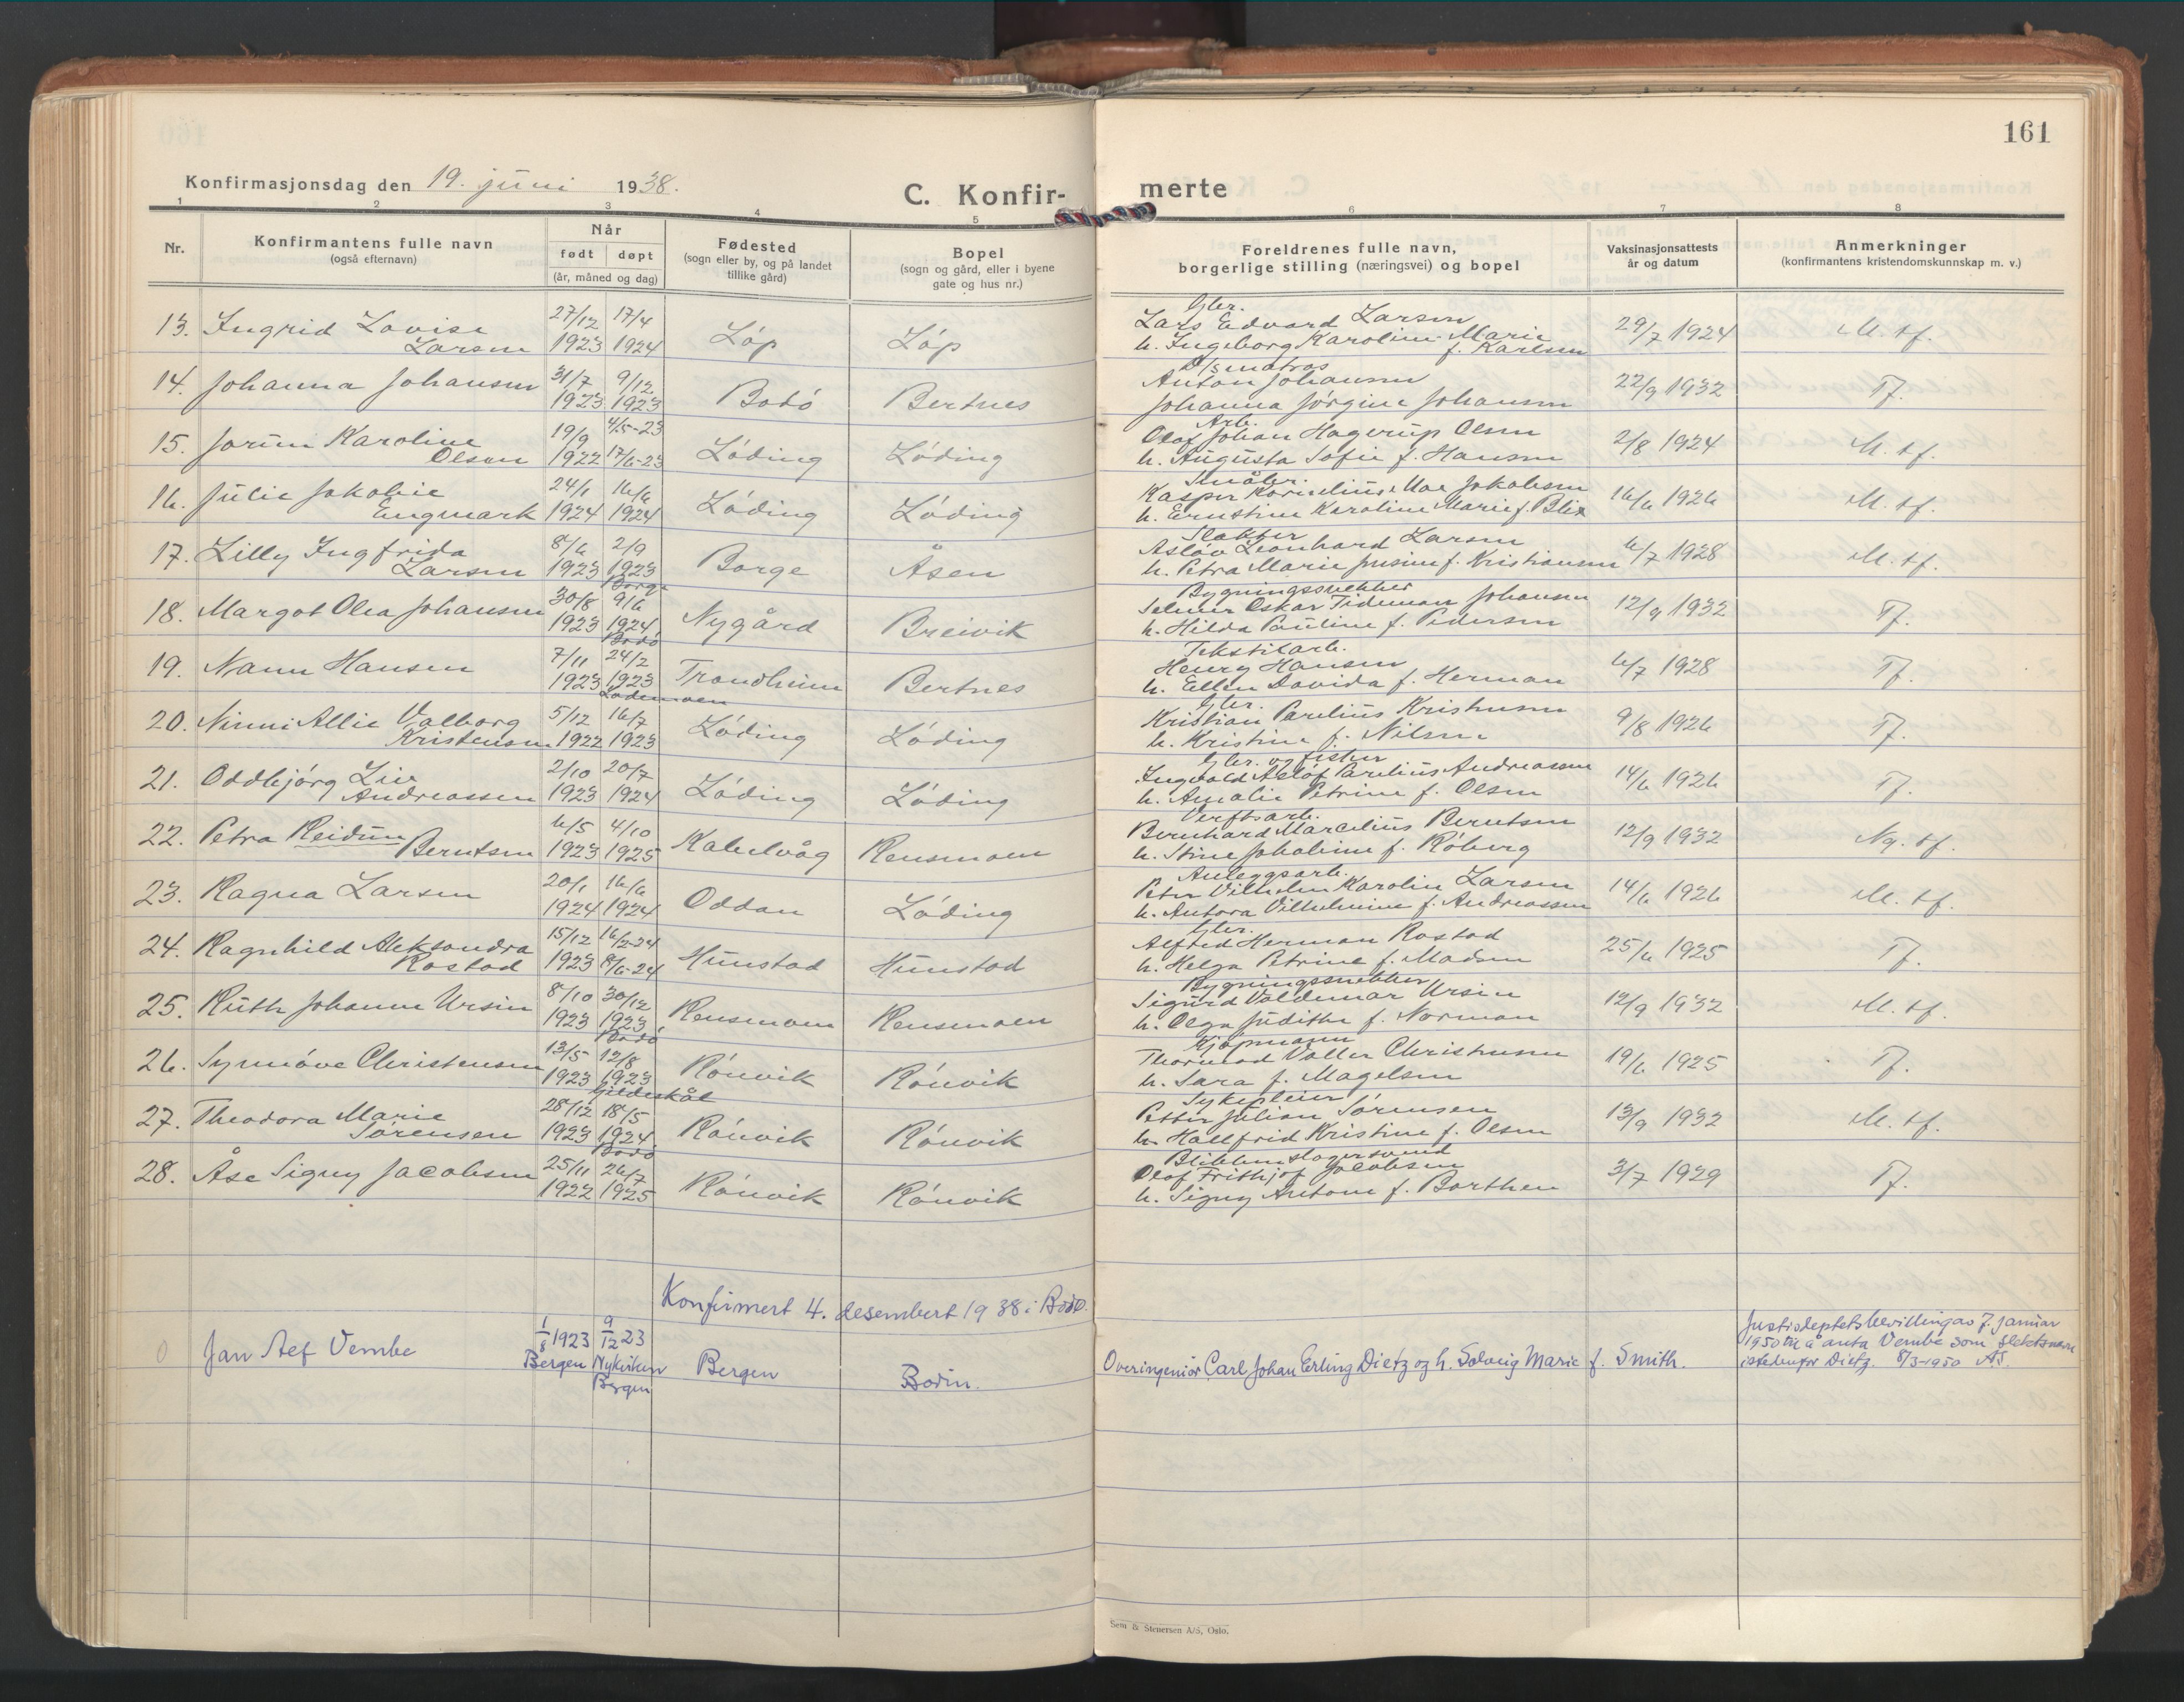 161
Konfirmasjonsdag den 19. juni 1938.
C. Konfir-
merte
1 2 3 4 5 6 7 8
Nr.
Konfirmantens fulle navn
(også efternavn)
Når
født døpt
(år, måned og dag)
Fødested
(sogn eller by, og på landet
tillike gård)
Bopel
(sogn og gård, eller i byene
gate og hus nr.)
Foreldrenes fulle navn,
borgerlige stilling (næringsvei) og bopel
Vaksinasjonsattests
år og datum
Anmerkninger
(konfirmantens kristendomskunnskap m. v.)
13. Ingrid Lovise 27/12 17/4 Løp Løp Gbr. Lars Edvard Larsen 29/7 1924 M. tf.
Larsen 1923 1924 h. Ingeborg Karoline Marie f. Karlsen
14. Johanna Johansen 31/7 9/12 Bodø Bertnes D/s matros Anton Johansen 22/9 1932 Tf.
1923 1923 Johanna Jørgine Johansen
15. Jorun Karoline 19/9 4/5-23 Løding Løding Arb. Olaf Johan Hagerup Olsen 2/8 1924 M. tf.
Olsen 1922 17/6-23 h. Augusta Sofie f. Hansen
16. Julie Jakobie 24/1 16/6 Løding Løding Småbr. Kasper Kornelius Moe Jakobsen 16/6 1926 M. tf.
Engmark 1924 1924 h. Ernstine Karoline Marie f. Blix
17. Lilly Ingfrida 8/6 2/9 Borge Åsen Slakter Asløv Leonhard Larsen 6/7 1928 M. tf.
Larsen 1923 1923 Borge h. Petra Marie Jusine f. Kristiansen
18. Margot Olea Johansen 30/8 9/6 Nygård Breivik Bygningssnekker Selmer Oskar Tideman Johansen 12/9 1932 Tf.
1923 1924 Bodø h. Hilda Pauline f. Pedersen
19. Nann Hansen 7/11 24/2 Trondheim Bertnes Tekstilarb. Henry Hansen 6/7 1928 Tf.
1923 1923 Lademoen h. Ellen Davida f. Herman
20. Ninni Allie Valborg 5/12 16/7 Løding Løding Gbr. Kristian Parelius Kristensen 9/8 1926 Tf.
Kristensen 1922 1923 h. Kristine f. Nilsen
21. Oddbjørg Liv 2/10 20/7 Løding Løding Gbr. og fisker Ingvald Asløf Parelius Andreassen 14/6 1926 Tf.
Andreassen 1923 1924 h. Amalie Petrine f. Olsen
22. Petra Reidun 6/5 4/10 Kabelvåg Rensmoen Verftsarb. Bernhard Marcelius Berntsen 12/9 1932 Ng. tf.
Berntsen 1923 1925 h. Stine Jakobine f. Røberg
23. Ragna Larsen 20/1 16/6 Oddan Løding Anleggsarb. Peter Vilhelm Karolin Larsen 14/6 1926 M. tf.
1924 1924 h. Antora Vilhelmine f. Andreassen
24. Ragnhild Aleksandra 15/12 16/2-24 Hunstad Hunstad Gbr. Alfred Herman Rostad 25/6 1925 Tf.
Rostad 1923 8/6-24 h. Helga Petrine f. Madsen
25. Ruth Johanne Ursin 8/10 30/12 Rensmoen Rensmoen Bygningssnekker Sigurd Valdemar Ursin 12/9 1932 M. tf.
1923 1923 Bodø h. Olga Judithe f. Norman
26. Synnøve Christensen 13/5 12/8 Rønvik Rønvik Kjøpmann Thormod Valler Christensen 19/6 1925 Tf.
1923 1923 Gildeskål h. Sara f. Magelsen
27. Theodora Marie 28/12 18/5 Rønvik Rønvik Sykepleier Petter Julian Sørensen 13/9 1932 M. tf.
Sørensen 1923 1924 Bodø h. Hallfrid Kristine f. Olsen
28. Åse Signy Jacobsen 25/11 26/7 Rønvik Rønvik Blikkenslagersvend Olaf Frithjof Jacobsen 3/7 1929 Tf.
1922 1925 h. Signy Antone f. Barthen
Konfirmert 4. desember 1938 i Bodø.
0 Jan Aef Vembe 1/8 1923 Bergen 9/12 23 Nykirken Bergen Bergen Bodin. Overingeniør Carl Johan Erling Dietz og h. Solveig Marie f. Smith.
Justisdeptets bevilling av 7. januar
1950 til å anta Vembe som slektsnavn
istedenfor Dietz. 8/3-1950 AS.
Sem & Stenersen A/S, Oslo.